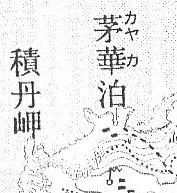 カヤカ
茅華泊
積丹岬